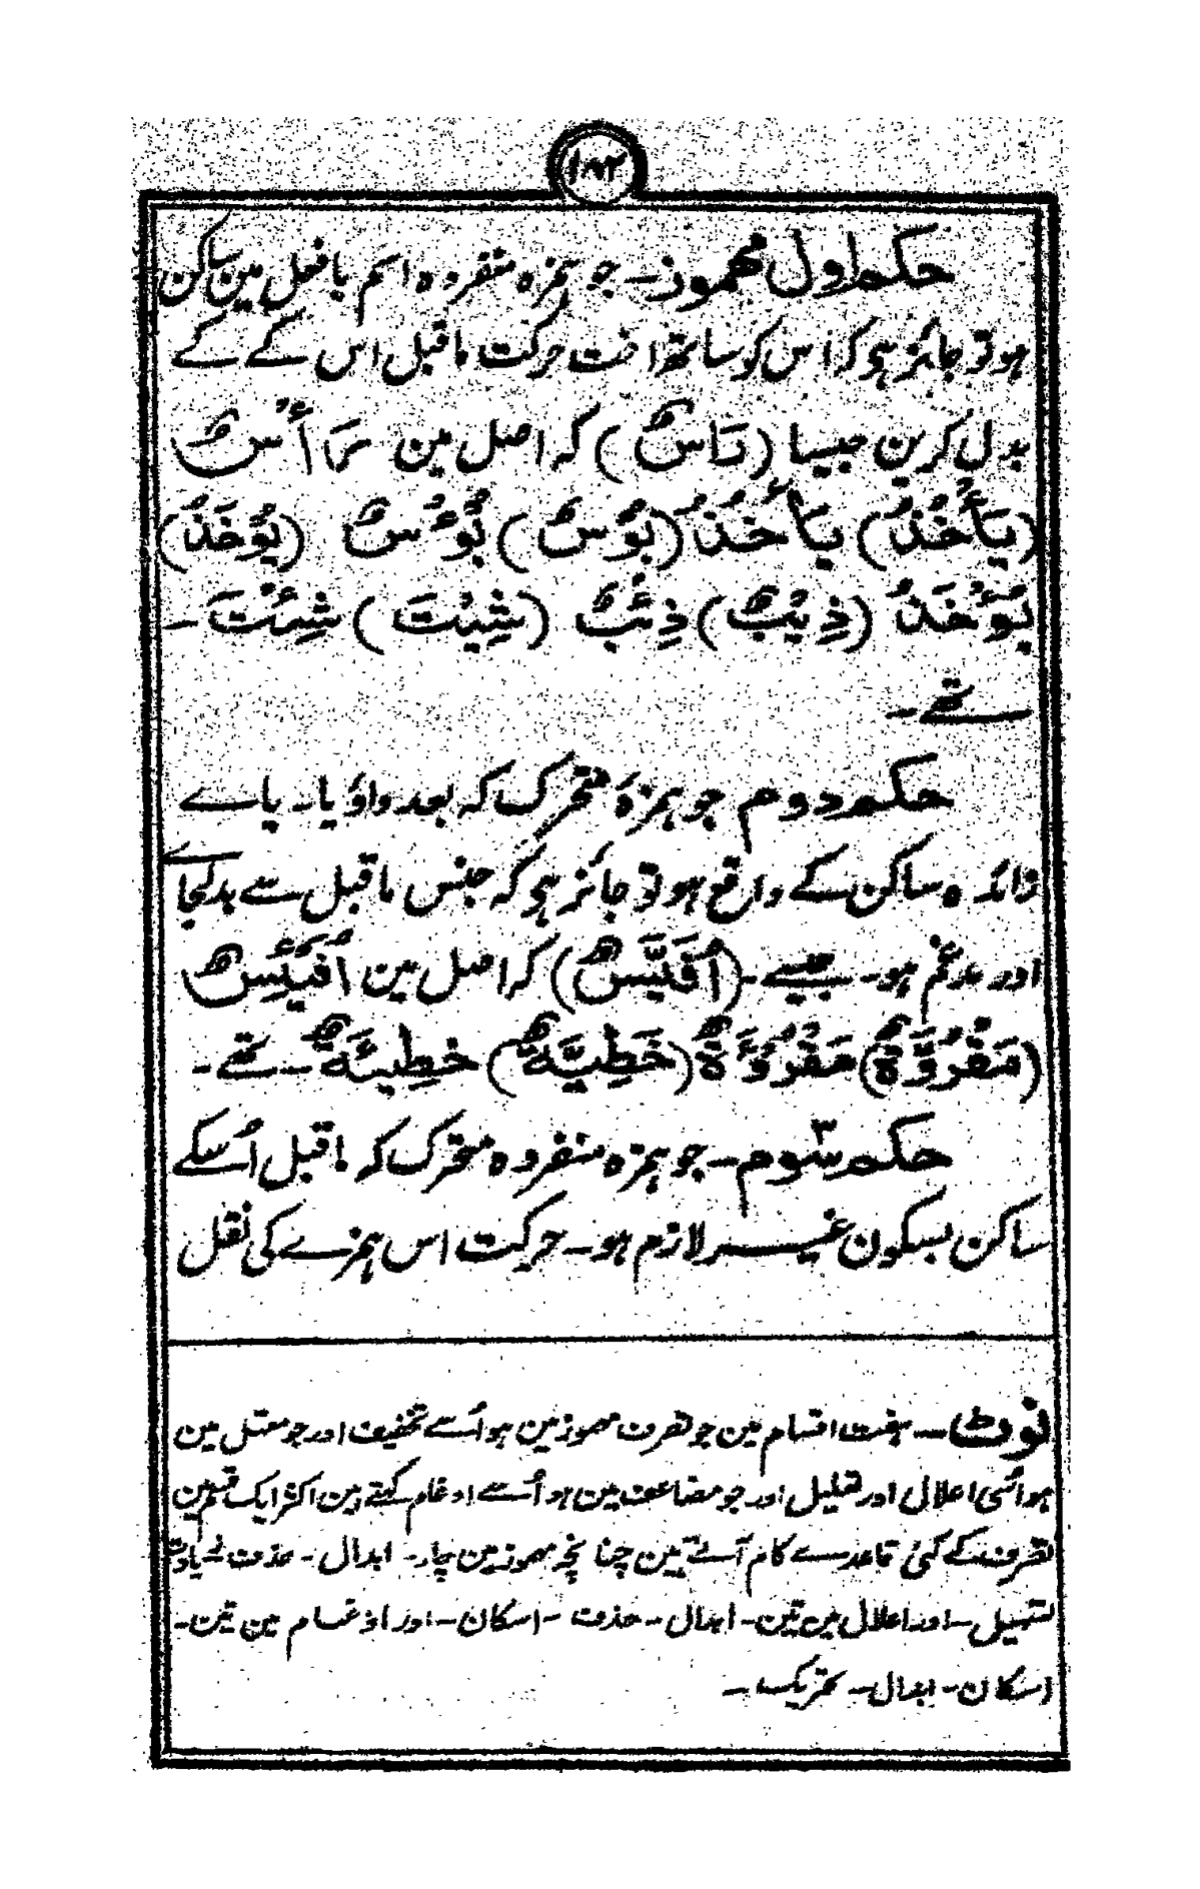 ۱۸۲
حکم اول مہموز ۔ جو ہمزہ منفردہ اسم یا فعل مین ساکن
ہو تو جائز ہی کہ اس کو ساتھ اخت حرکت ماقبل اس کے کے
بدل کرین جیسا (رَاسٌ) کہ اصل مین رَأْسٌ
(یَاخُذُ) یَأْخُذُ (بُوْسٌ) بُؤْسٌ (یُوْخَذُ)
یُؤْخَذُ (ذِیْبٌ) ذِئْبٌ (شِیْتَ) شِئْتَ ۔
تھے ۔
حکم دوم جو ہمزہ متحرک کہ بعد واؤ یا ۔ یاے
زائدہ ساکن کے واقع ہو تو جائز ہی کہ جنس ماقبل سے بدلجاے
اور مدغم ہو ۔ جیسے ۔ (اُفَیِّسٌ) کہ اصل مین اُفَیْئِسٌ
(مَقْرُوَّةٌ) مَقْرُوْءَةٌ (خَطِیَّةٌ) خَطِیْئَةٌ ۔ تھے ۔
حکم سوم ۔ جو ہمزہ منفردہ متحرک کہ ماقبل اُسکے
ساکن بسکون غیر لازم ہو ۔ حرکت اس ہمزے کی نقل
نوٹ ۔ ہفت اقسام مین جو تصرف مہموز مین ہو اُسے تخفیف اور جو معتل مین
ہو اُسی اعلال اور تعلیل اور جو مضاعف مین ہو اُسے ادغام کہتے ہین اکثر ایک قسم مین
تصرف کے کئی قاعدے کام آتے ہین چنانچہ مہموز مین چار ۔ ابدال ۔ حذف ۔ زیادت
تسہیل ۔ اور اعلال مین تین ۔ ابدال ۔ حذف ۔ اسکان ۔ اور ادغام مین تین ۔
اسکان ۔ ابدال ۔ تحریک ۔